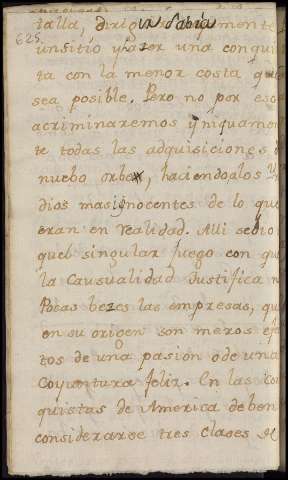 625
talla, dirigir sabiamente
un sitio y azer una conqui
ta con la menor costa que
sea posible. Pero no por eso
acriminaremos yniquamen
te todas las adquisiciones
nuebo orbe, haciendo a los Un
dios mas ignocentes de lo que
eran en realidad. Alli se dio
quel singular juego con que
la Causualidad Justifica n
Pocas bezes las empresas, que
en su origen son meros efe
tos de una pasión o de una
Coyuntura feliz. En las con
quistas de America deben
considerarse tres clases